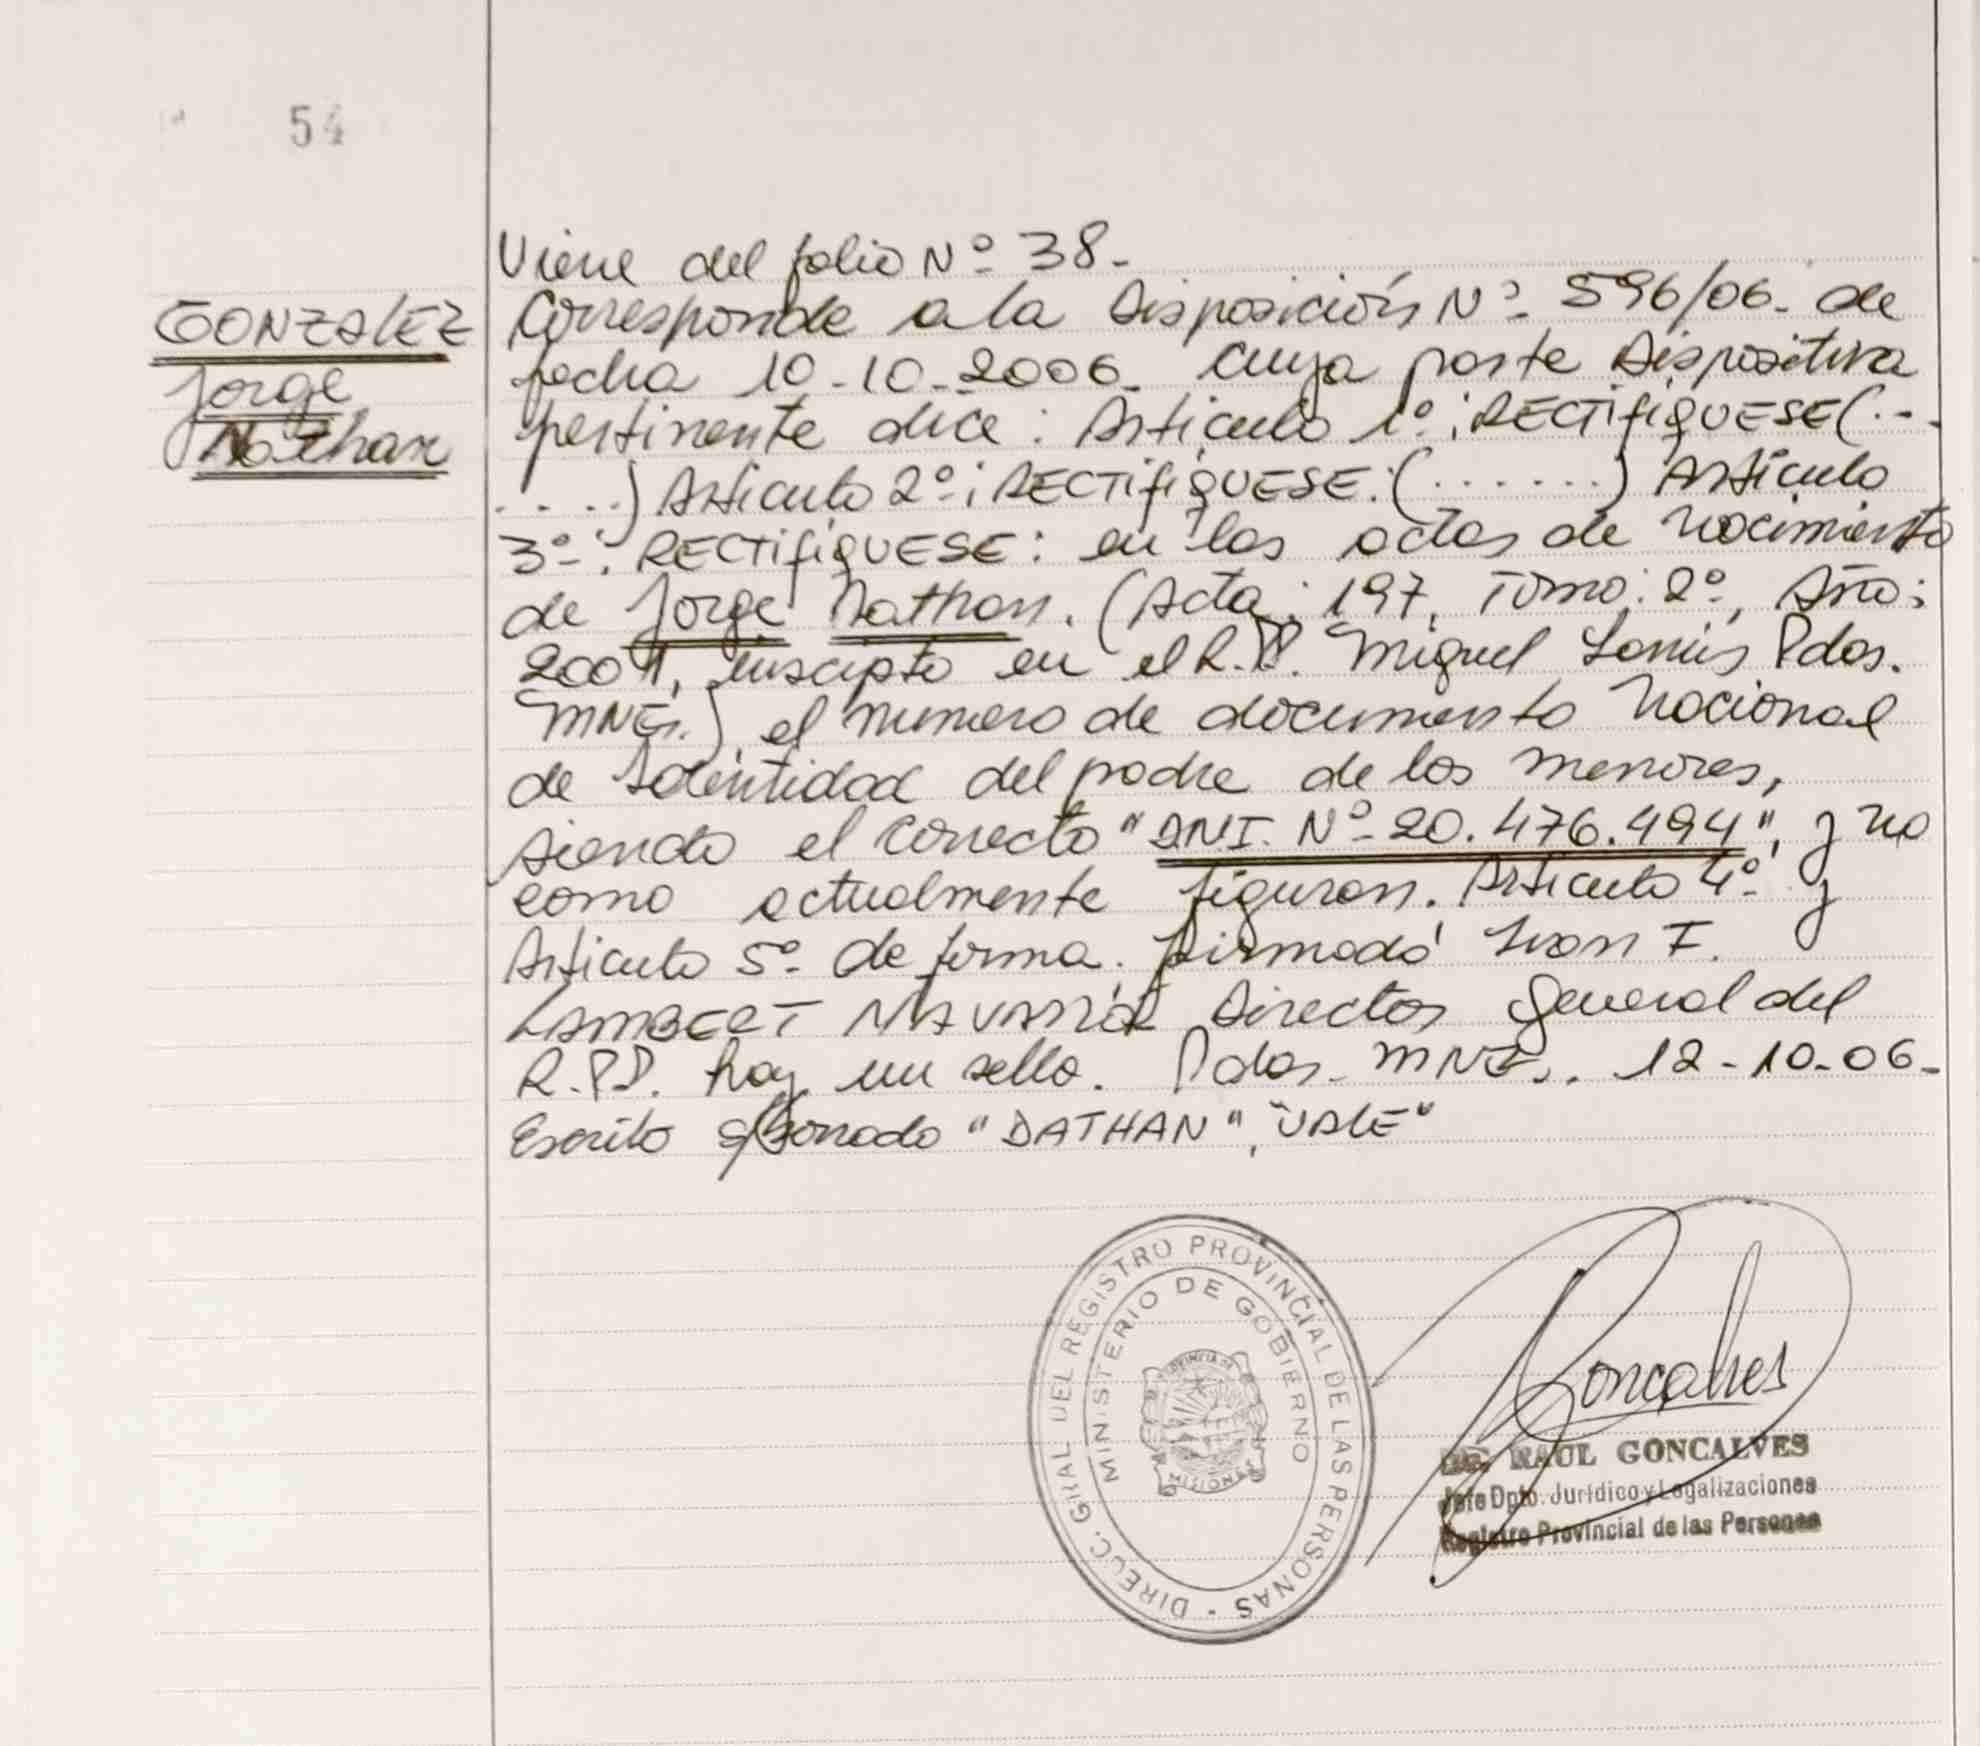 54
GONZALEZ
Jorge
Nathan
Viene del folio Nº 38.-
Corresponde a la Disposición Nº 596/06- de
fecha 10-10-2006- cuya parte Dispositiva
pertinente dice: Artículo 1º: RECTIFIQUESE(...
....) Artículo 2º: RECTIFIQUESE:(.......) Artículo
3º-: RECTIFIQUESE: en las actas de nacimiento
de Jorge Dathan. (Acta: 197, Tomo: 2º, Año:
2001, inscripto en el R.P.P. Miguel Lanús Pdas.
MNES.), el número de documento Nacional
de Identidad del padre de los menores,
siendo el correcto "DNI. Nº 20.476.494", y no
como actualmente figuran. Artículo 4º y
Artículo 5º- de forma. firmado Ivan F.
LAMBERT NAVARRO Director General del
R.P.P. hay un sello. Pdas- MNES., 12-10-06-
Escrito s/borrado "DATHAN", "VALE"
DIRECC. GRAL DEL REGISTRO PROVINCIAL DE LAS PERSONAS -
MINISTERIO DE GOBIERNO
PROVINCIA DE
MISIONES
Goncalves
RAUL GONCALVES
Jefe Dpto. Jurídico y Legalizaciones
Registro Provincial de las Personas